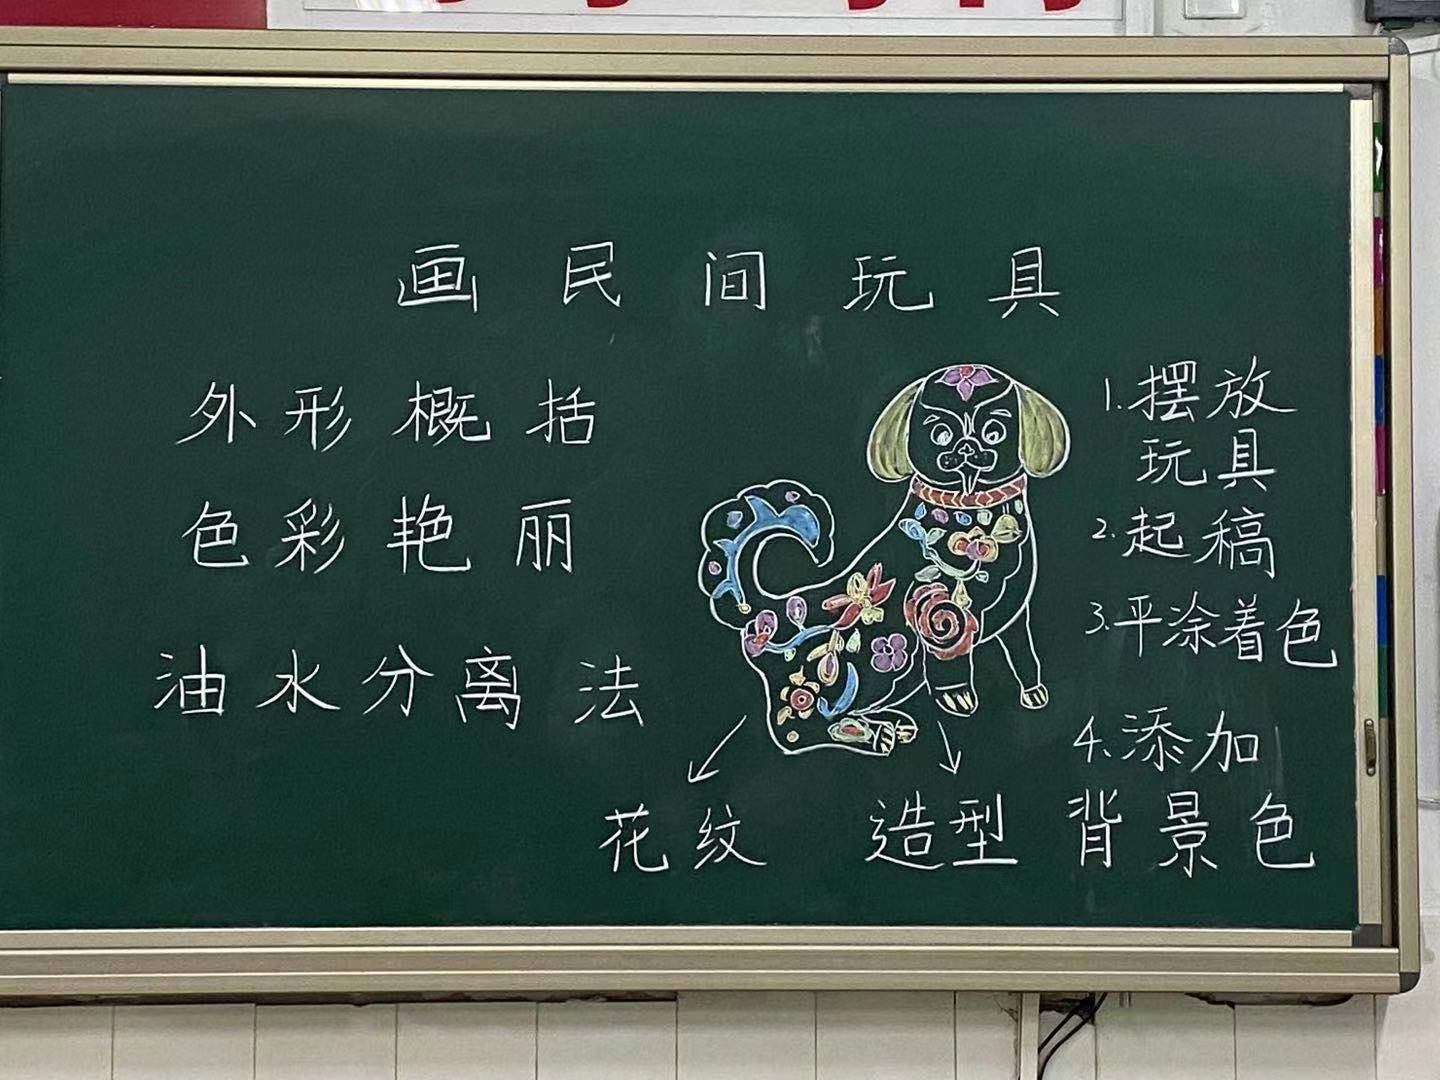 画民间玩具
外形概括
色彩艳丽
油水分离法
花纹
造型
1.摆放
玩具
2.起稿
3.平涂着色
4.添加
背景色